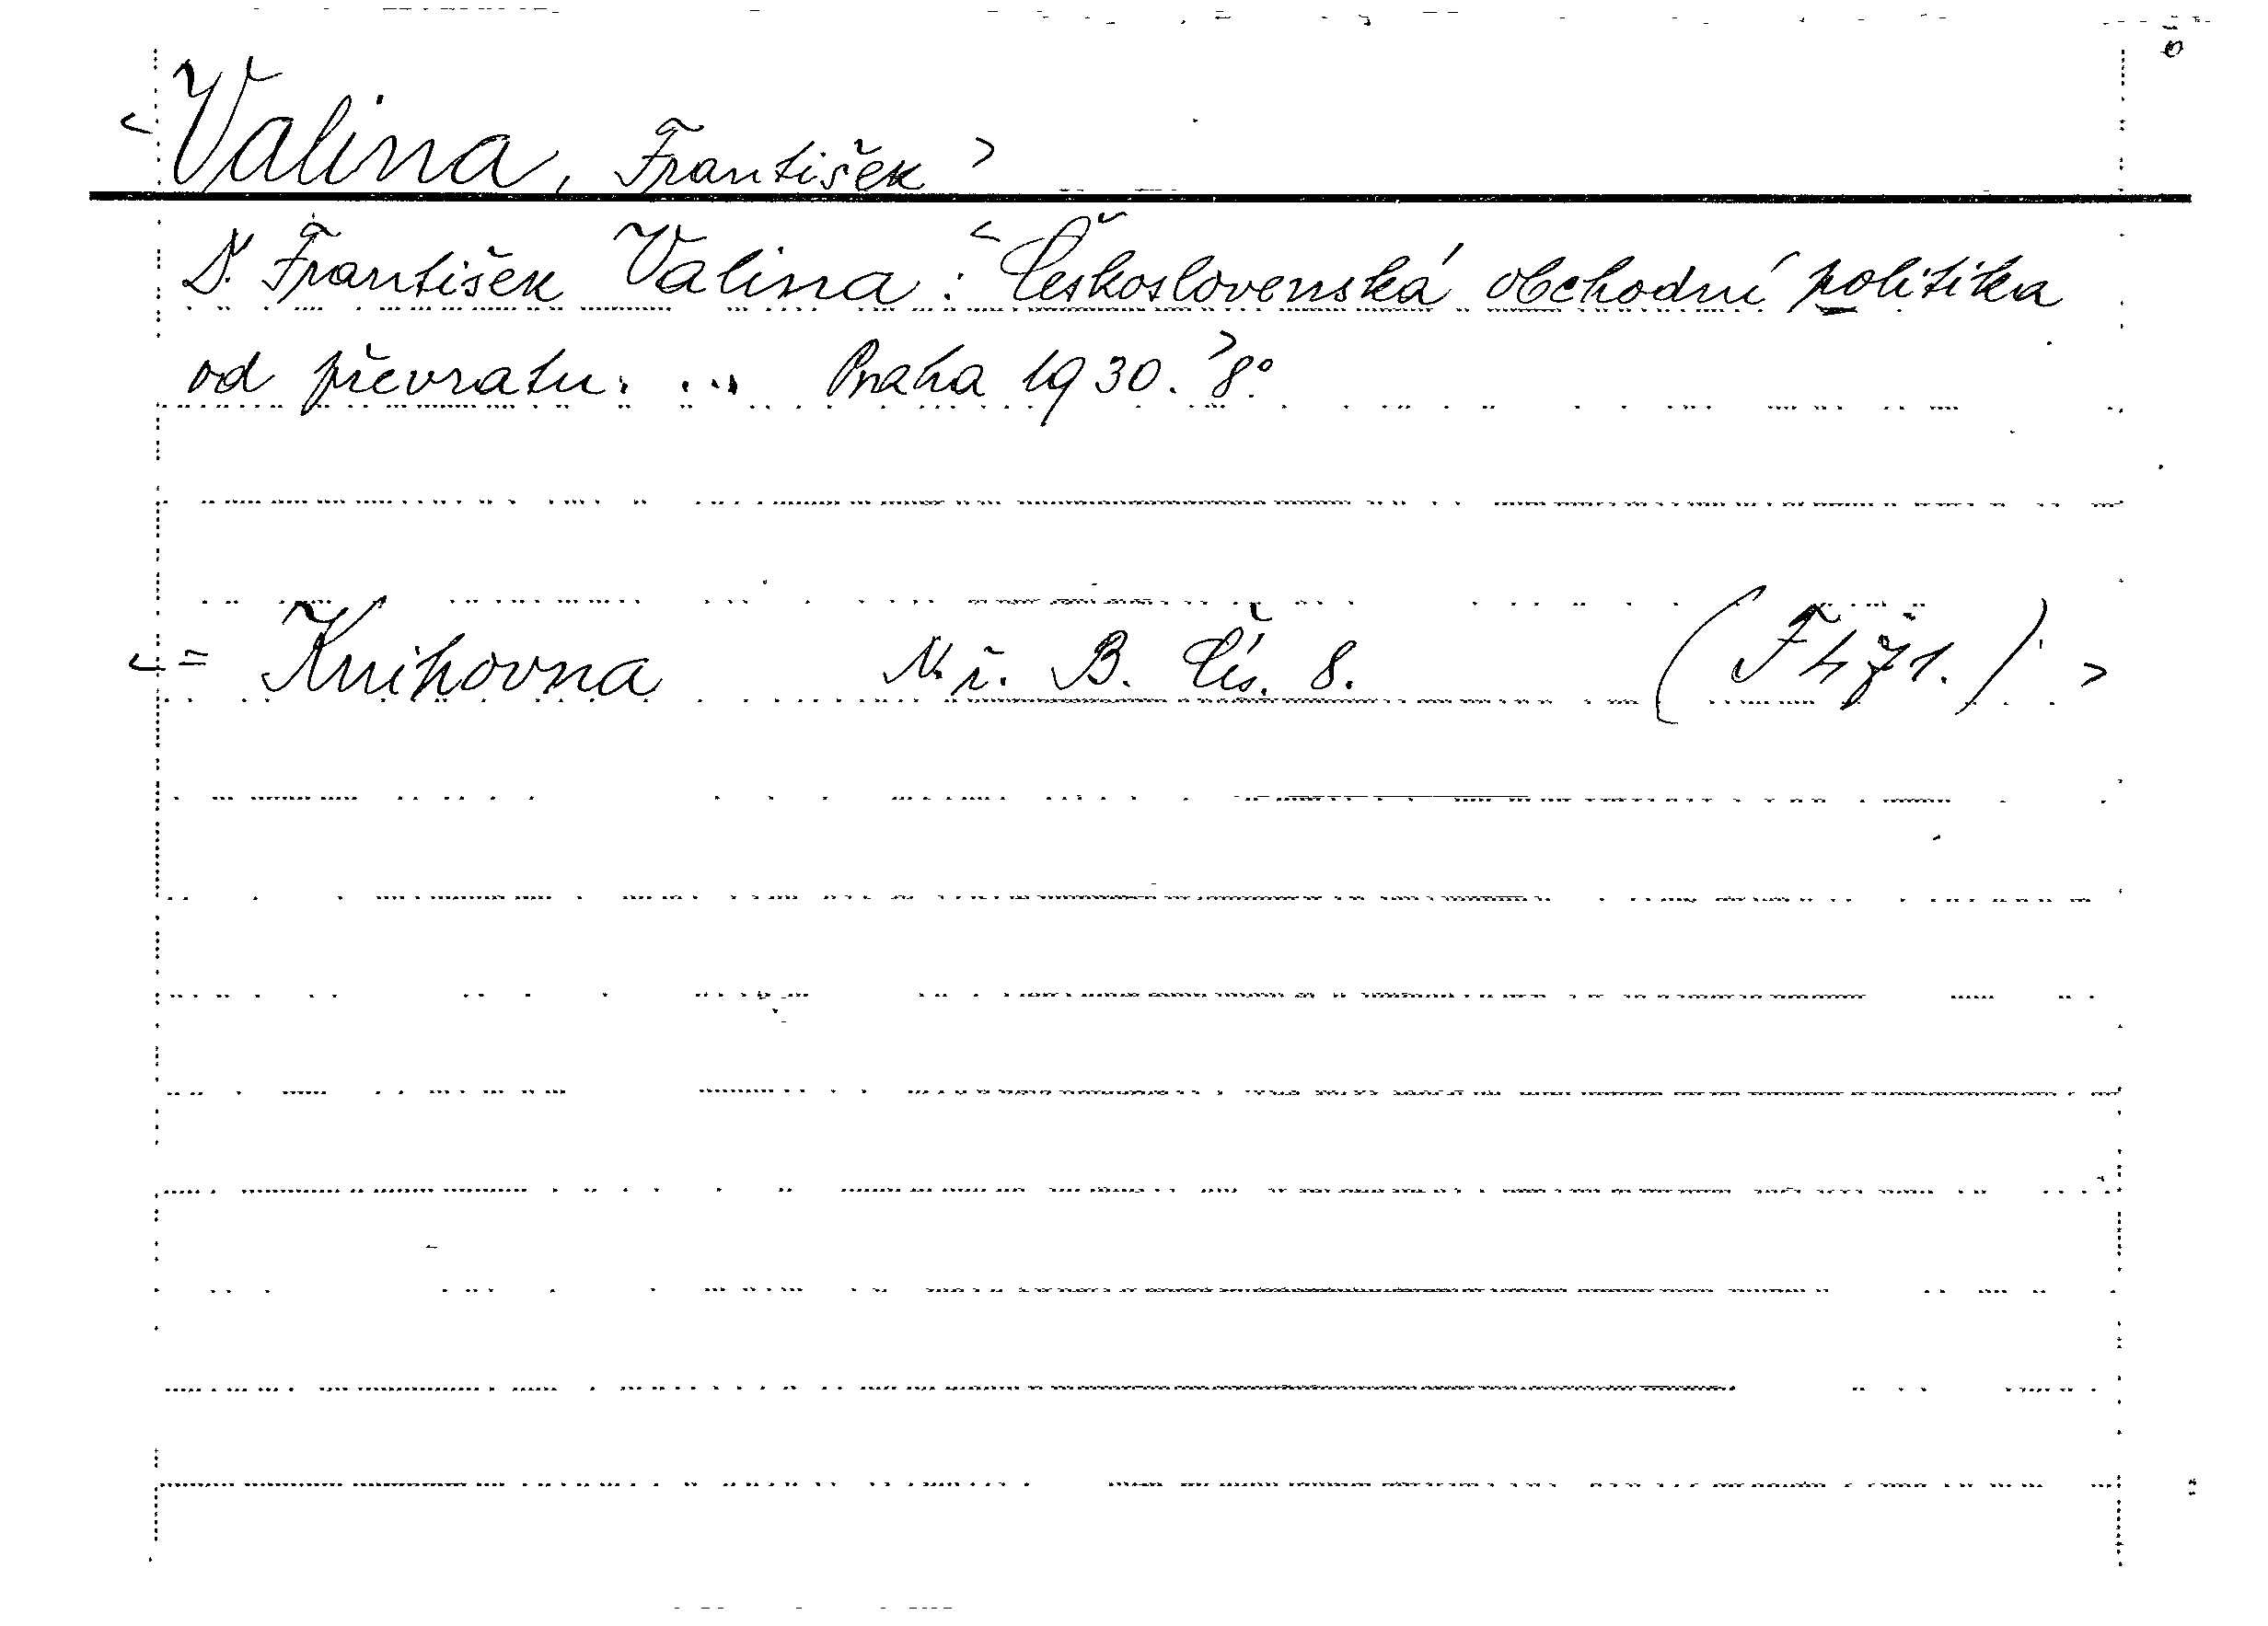 <Valina, František>
Dr. František Valina: <Československá obchodní politika
od převratu. ... Praha 1930.> 8°.
<= Knihovna N. ř. B. Čís. 8. ( )>